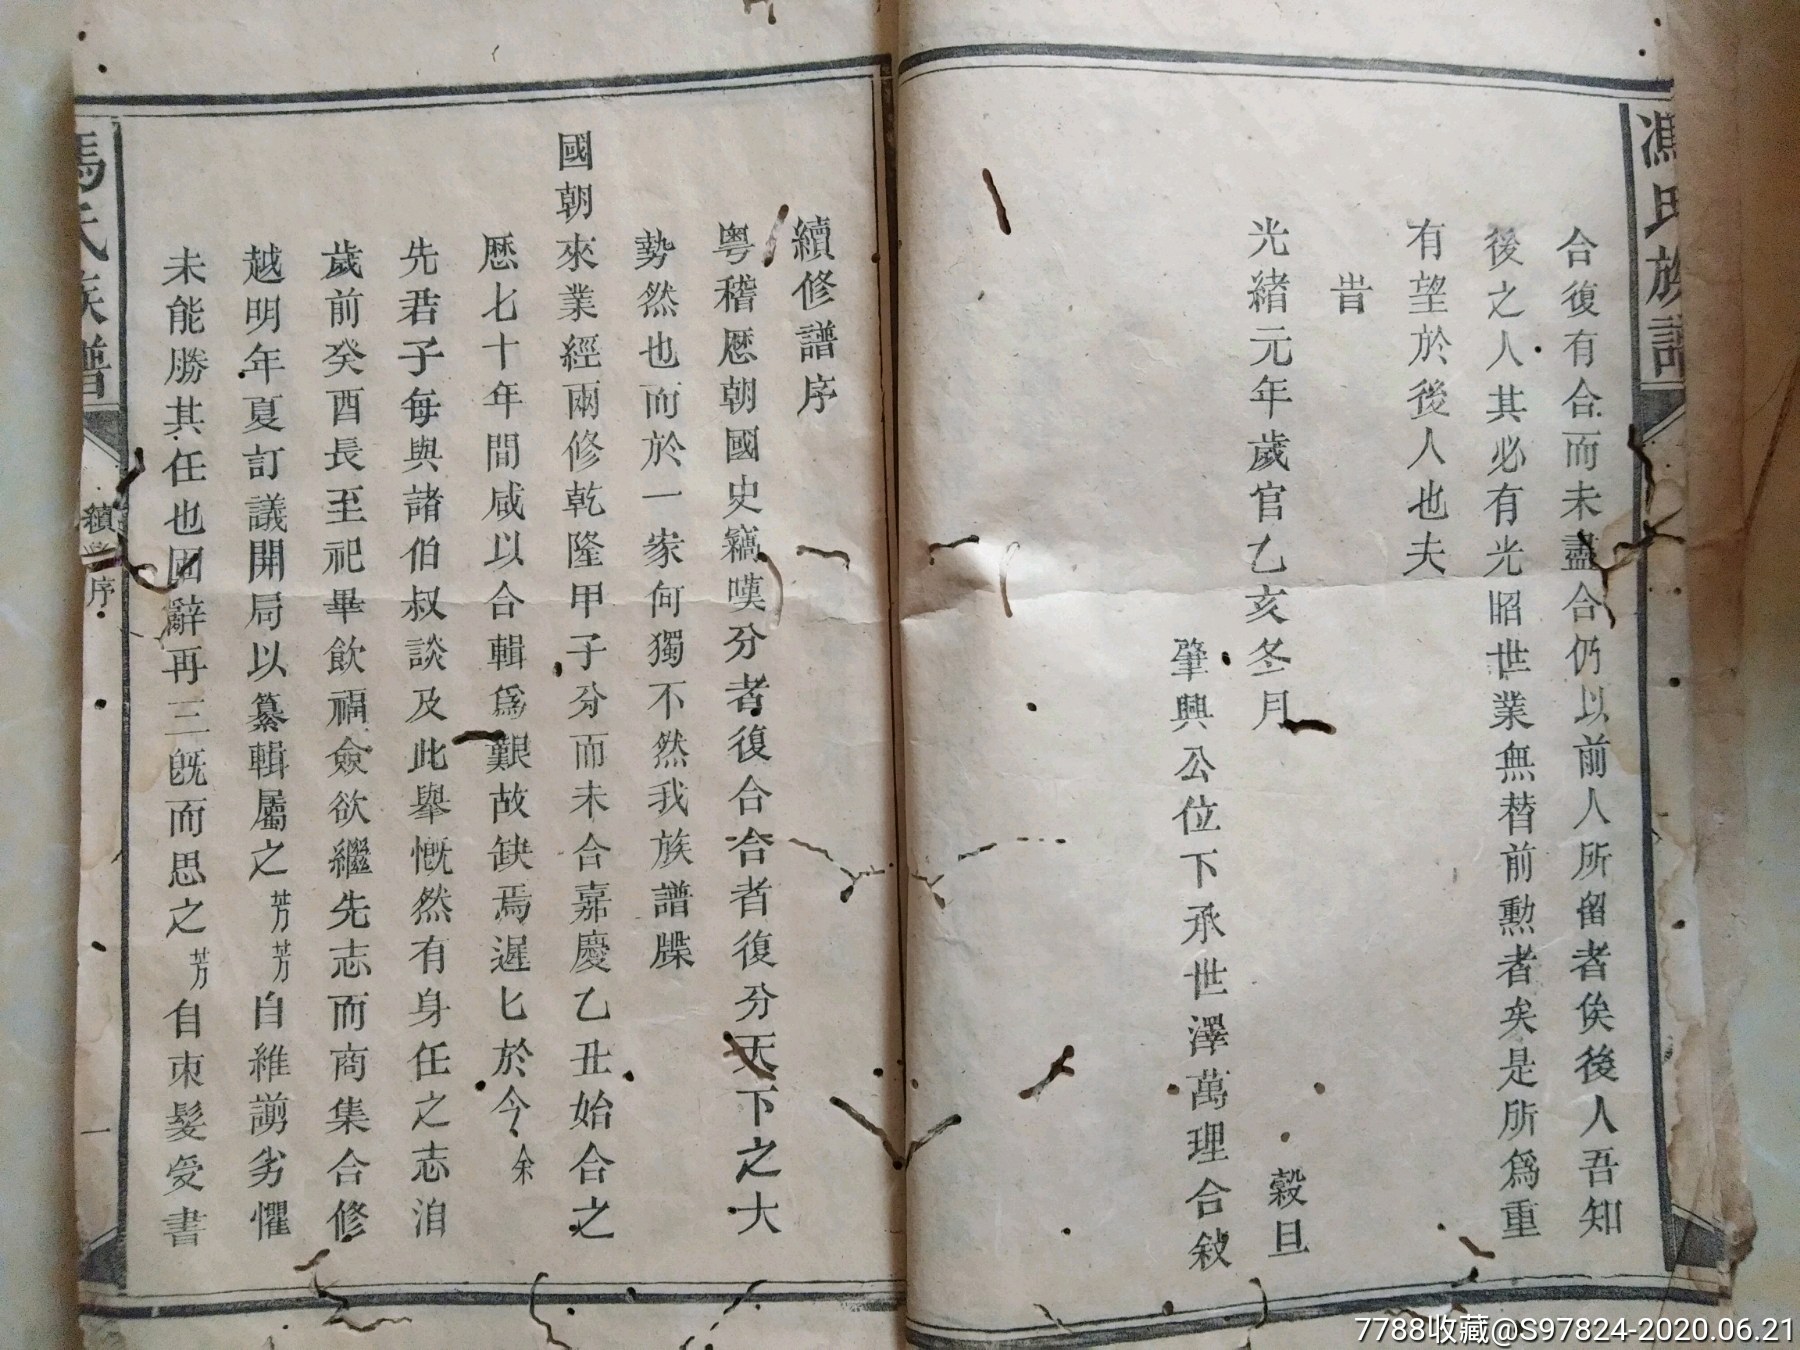 馮氏族譜
合復有合而未盡合仍以前人所留者俟後人吾知
後之人其必有光昭世業無替前勲者矣是所爲重
有望於後人也夫
旹
光緒元年歲官乙亥冬月
穀旦
肇興公位下承世澤萬理合敍
續修譜序
粤稽厯朝國史竊嘆分者復合合者復分天下之大
勢然也而於一家何獨不然我族譜牒
國朝來業經兩修乾隆甲子分而未合嘉慶乙丑始合之
厯七十年間咸以合輯爲艱故缺焉遲匕於今余
先君子每與諸伯叔談及此舉慨然有身任之志洎
歲前癸酉長至祀畢飲福僉欲繼先志而商集合修
越明年夏訂議開局以纂輯屬之芳芳自維謭劣懼
未能勝其任也固辭再三旣而思之芳自束髮受書
馮氏族譜
續
序
一
7788收藏@S97824-2020.06.21